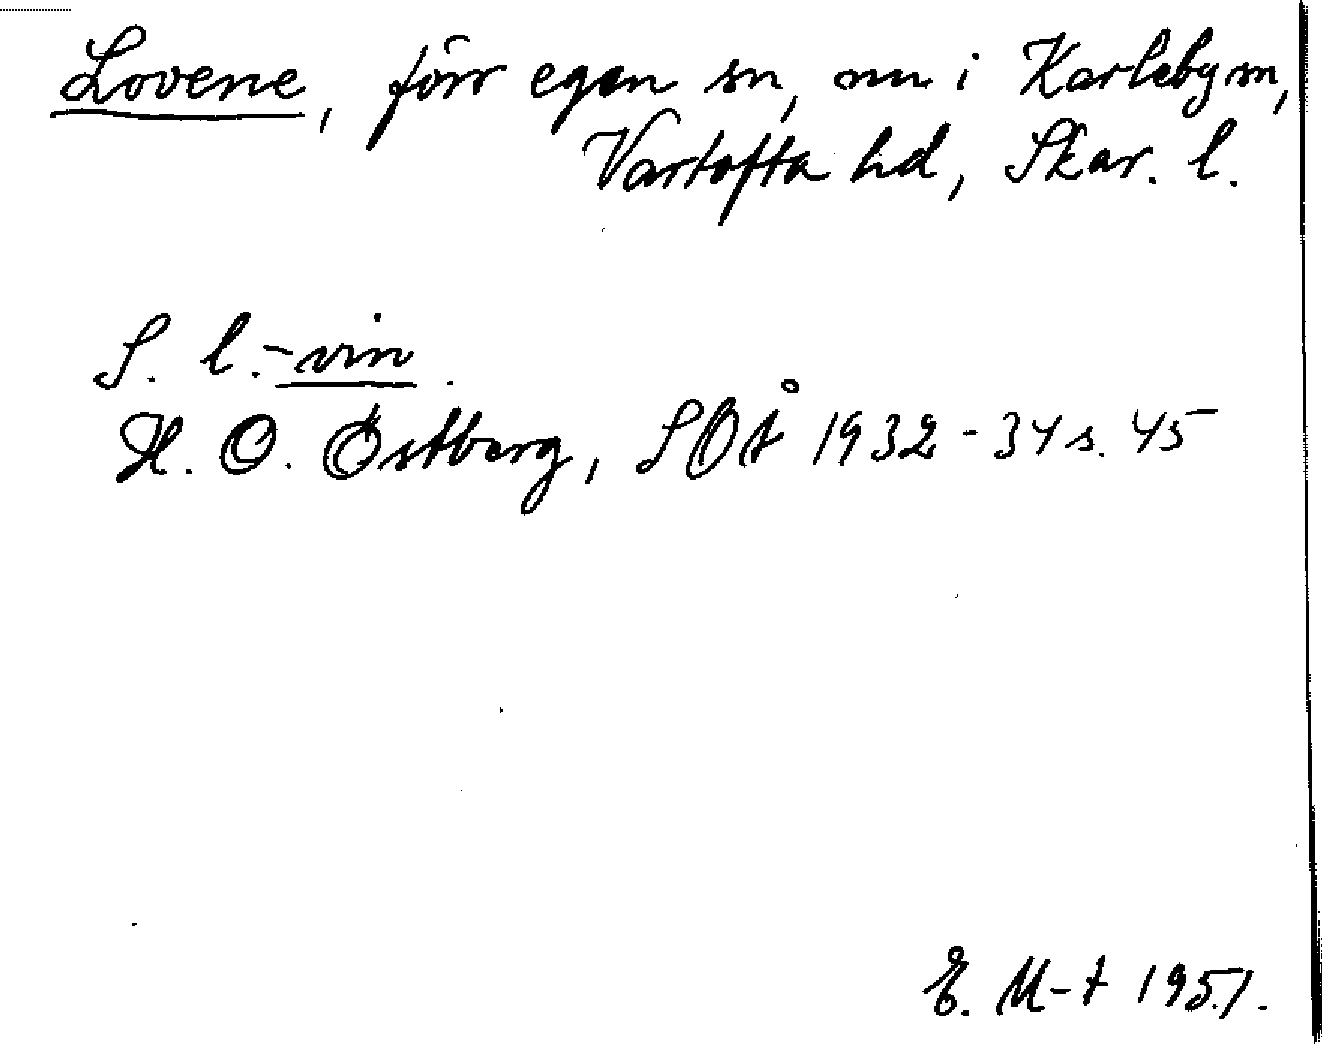 Lovene, förr egen sn, nu i Karleby sn,
Vartofta hd, Skar. l.
S. l. -vin.
H. O. Östberg, SOÅ 1932-34 s. 45
E. M-t 1951.